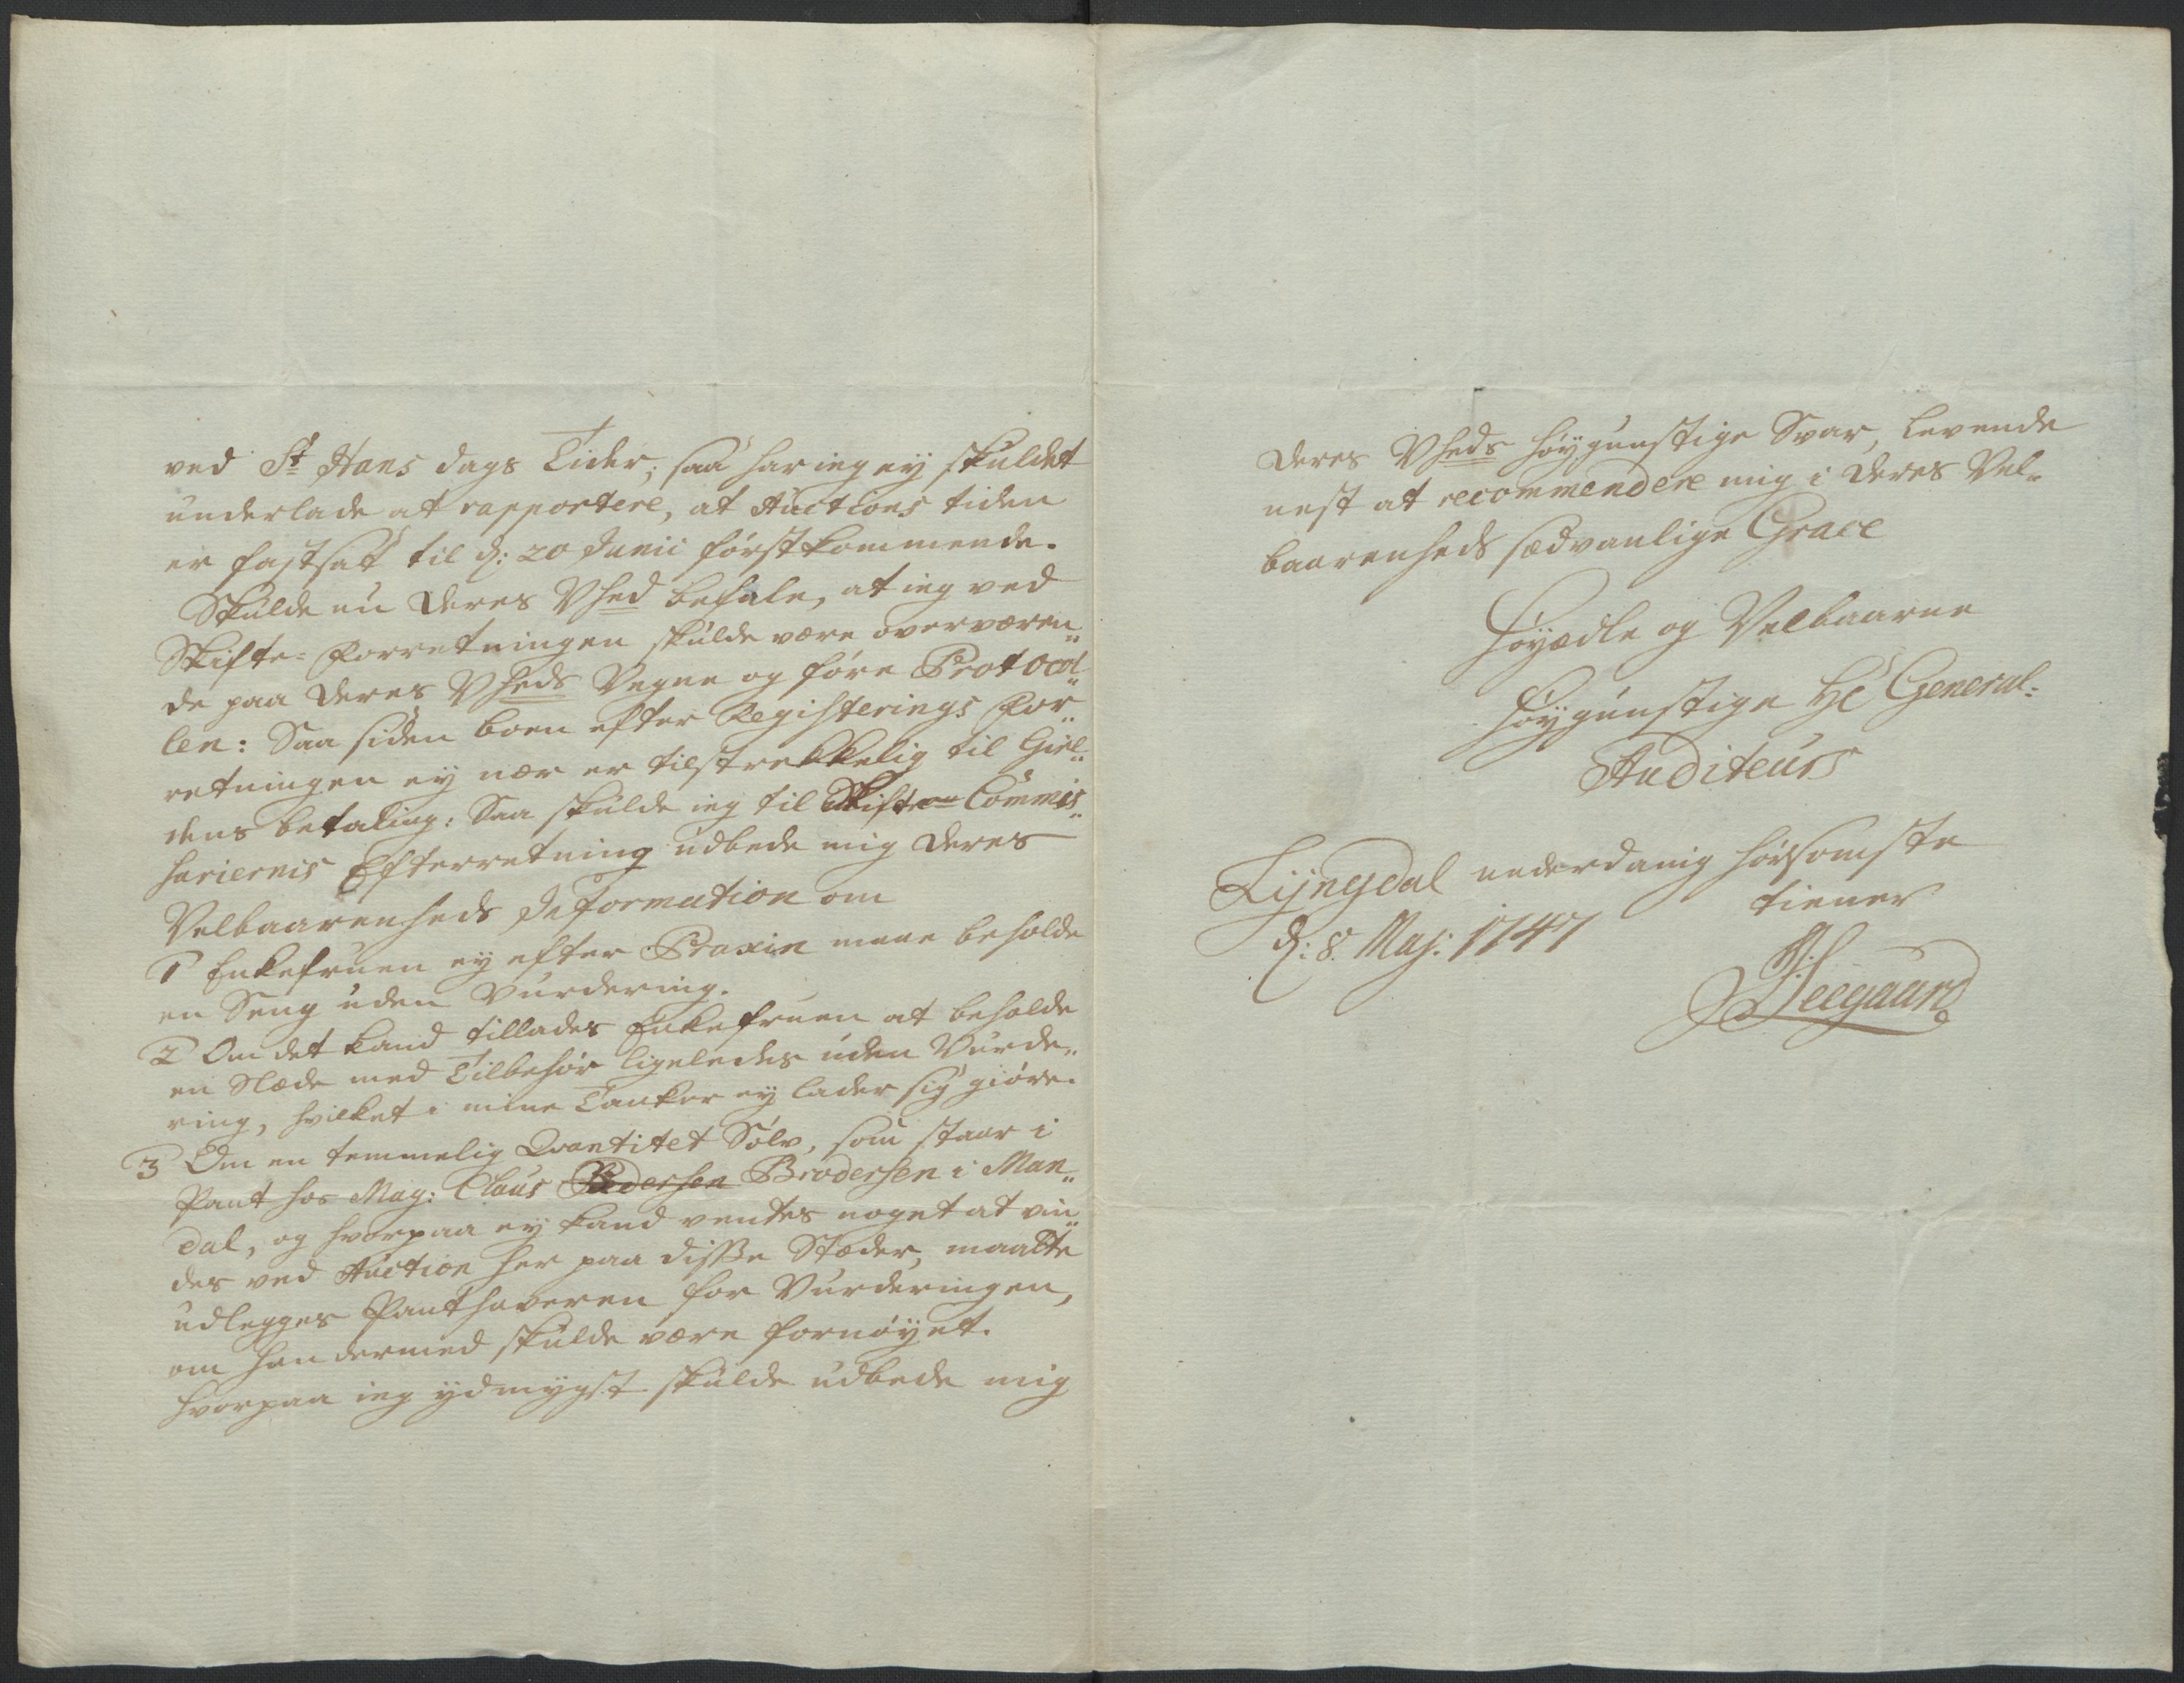 ved St Hans dags Tider; saa har ieg ey skuldet
underlade at rapportere, at Auctions tiden
er fastsat til d: 20 Junii førstkommende.
Skulde nu Deres Vhed befale, at ieg ved
Skifte-Forretningen skulde være overværen„
de paa Deres Vheds Vegne og føre Protocol„
len: Saa siden boen efter Registerings For„
retningen ey nær er tilstrekkelig til Giel„
dens betaling: Saa skulde ieg til Skifte Commis„
sariernis Efterretning udbede mig Deres
Velbaarenheds Information om
1 Enkefruen ey efter Praxin maae beholde
en Seng uden Vurdering.
2 Om det kand tillades Enkefruen at beholde
en Slæde med Tilbehør ligeledes uden Vurde„
ring, hvilket i mine Tanker ey lader sig giøre.
3 Om en temmelig Qvantitet Sølv, som staar i
Pant hos Mag: Claus Pedersen Brodersen i Man„
dal, og hvorpaa ey kand ventes noget at vin„
des ved Auction her paa disse Stæder, maatte
udlegges Panthaveren for Vurderingen,
om han dermed skulde være fornøyet.
hvorpaa ieg ydmygst skulde udbede mig
Deres Vheds høygunstige Svar, levende
nest at recommendere mig i Deres Vel„
baarenheds sædvanlige Grace
Høyædle og Velbaarne
Høygunstige Hr General-
Auditeurs
Lyngdal underdanig hørsomste
d: 8. Maj: 1747 tiener
Seegaard